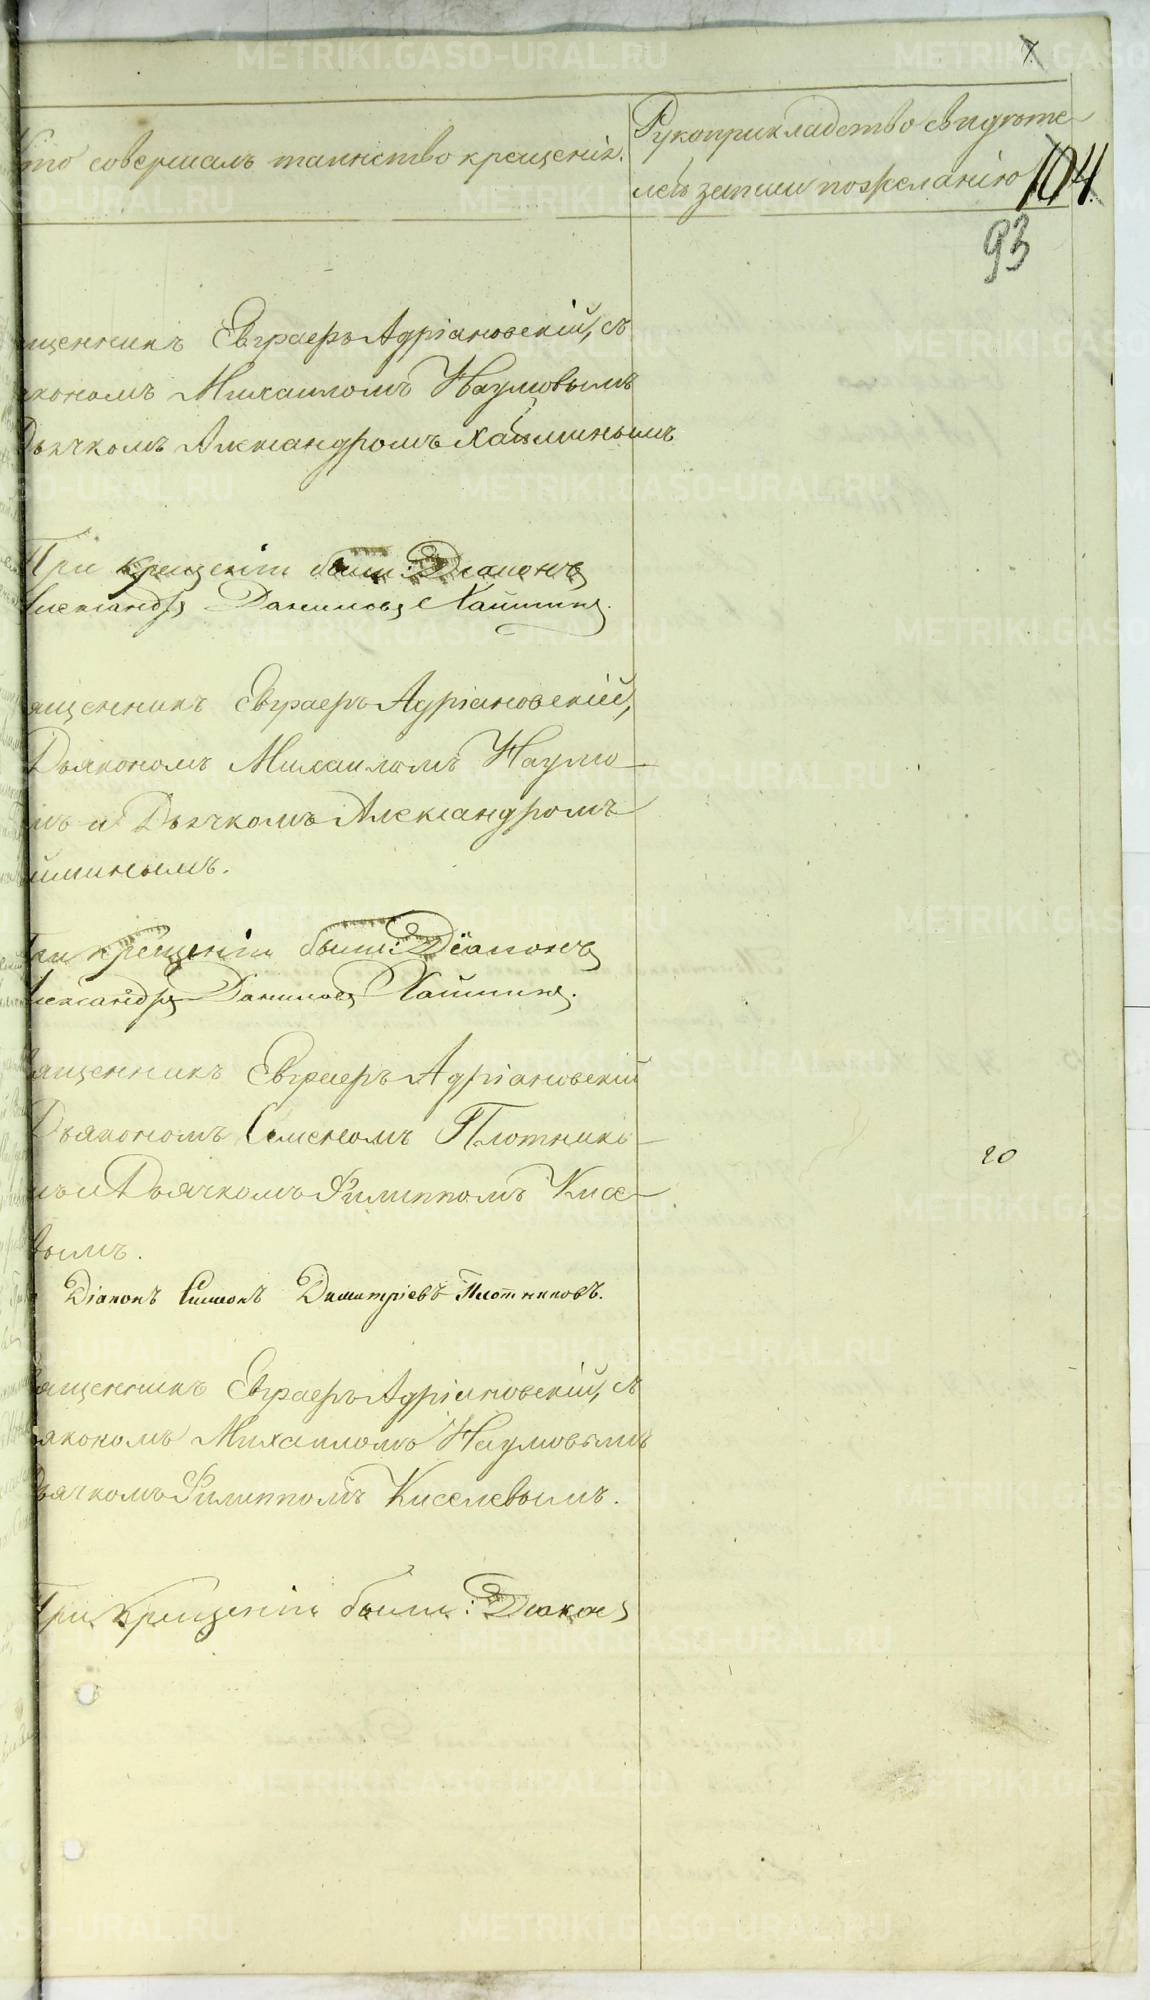 7
Кто совершалъ таинство крещенія.
Рукоприкладство свидѣте-
лей записи по желанію
104
93
ященникъ Евграфъ Адріановскій, съ
якономъ Михаиломъ Наумовымъ
Дьячкомъ Александромъ Хайминымъ
При крещеніи были: Діаконъ
Александръ Даниловъ Хайминъ.
ященникъ Евграфъ Адріановскій,
Дьякономъ Михаиломъ Наумо-
мъ и Дьячкомъ Александромъ
йминымъ.
При крещеніи были: Діаконъ
Александръ Даниловъ Хайминъ.
ященникъ Евграфъ Адріановскій
Дьякономъ Семеномъ Плотнико-
мъ и Дьячкомъ Филиппомъ Кисе-
вымъ.
20
Діаконъ Симеонъ Димитріевъ Плотниковъ.
ященникъ Евграфъ Адріановскій, съ
якономъ Михаиломъ Наумовымъ
Дьячкомъ Филиппомъ Киселевымъ.
При Крещеніи были: Діаконъ
METRIKI.GASO-URAL.RU